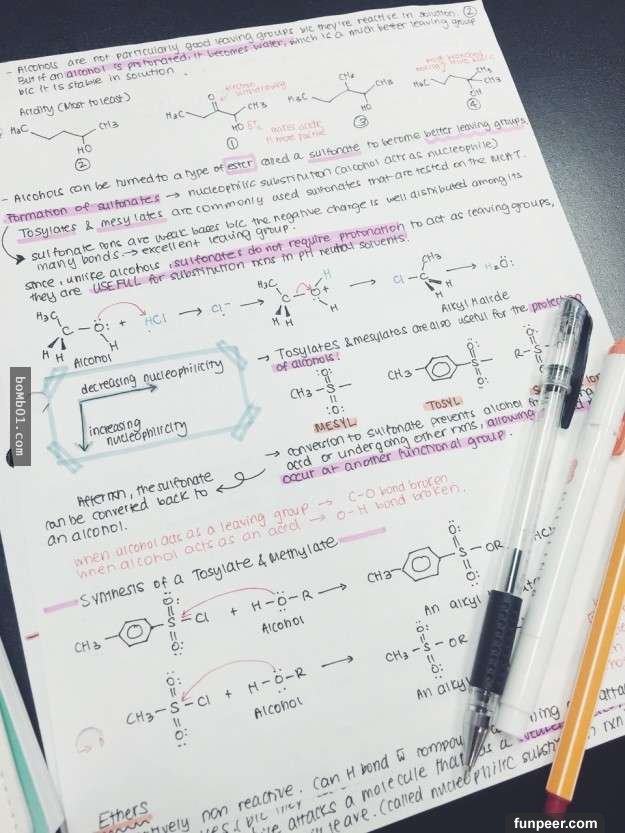 - Alcohols are not particularly good leaving groups b/c they're reactive in solution. ②
But if an alcohol is protonated, it becomes water, which is a much better leaving group
b/c it is stable in solution.
Acidity (Most to least)
electron withdrawing
most branched
H₃C CH₃ HO ②
H₃C O CH₃ HO ①
H₃C CH₃ CH₃ HO ③
H₃C CH₃ CH₃ OH ④
makes acidic
H more
- Alcohols can be turned to a type of ester called a sulfonate to become better leaving groups.
Formation of sulfonates → nucleophilic substitution (alcohol acts as nucleophile)
Tosylates & mesylates are commonly used sulfonates that are tested on the MCAT.
sulfonate ions are weak bases b/c the negative charge is well distributed among its
many bonds → excellent leaving group.
since, unlike alcohols, sulfonates do not require protonation to act as leaving groups,
they are USEFULL for substitution rxns in pH neutral solvents.
H₃C C H H O H + HCl → Cl⁻ H₃C C H H O⁺ H H → Cl CH₃ C H H → H₂O
Alcohol
Alkyl Halide
decreasing nucleophilicity
increasing
nucleophilicity
→ Tosylates & mesylates are also useful for the
of alcohols!
CH₃-S- :O: :O:
MESYL
CH₃ S O O
TOSYL
R-S
→ conversion to sulfonate prevents alcohol
acid or undergoing other rxns, allowing
occur at another functional group.
After rxn, the sulfonate
can be converted back to
an alcohol.
when alcohol acts as a leaving group → C-O bond broken
when alcohol acts as an acid → O-H bond broken.
Synthesis of a Tosylate & Methylate
CH₃ S O O Cl + H-O-R → CH₃ S O O OR
Alcohol
An alkyl
CH₃-S-Cl O O + H-O-R → CH₃-S-OR O O
Alcohol
An alkyl
Ethers
non reactive. Can H bond w
attacks a molecule that
(called nucleophilic rxn
boMb01.com
funpeer.com